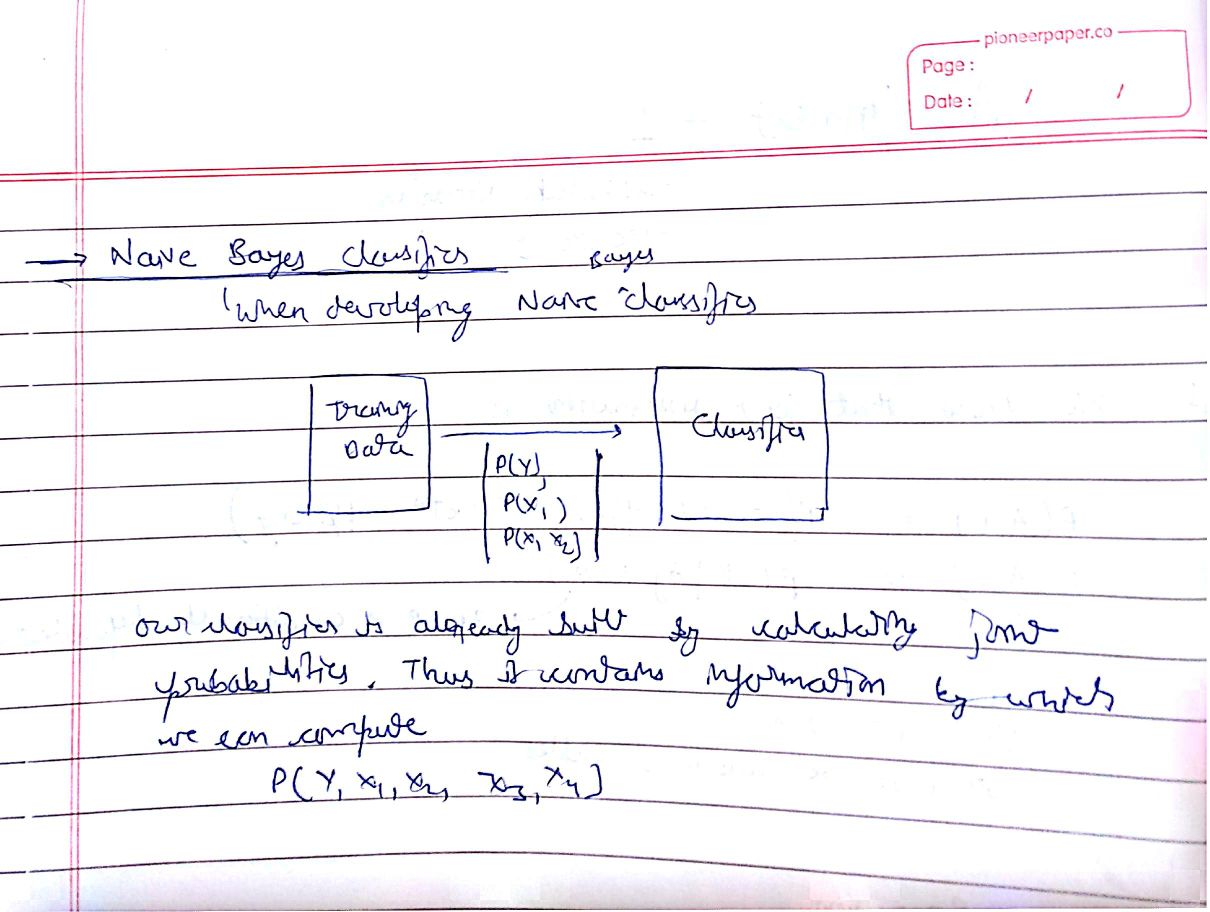 pioneerpaper.co
Page :
Date : / /
→ Naive Bayes Classifier
Bayes
When developing Naive Classifier
Training
Data
Classifier
P(Y),
P(X₁)
P(X₁ X₂)
our classifier is already built by calculating joint
probabilities. Thus it contains information by which
we can compute
P(Y, X₁, X₂, X₃, X₄)